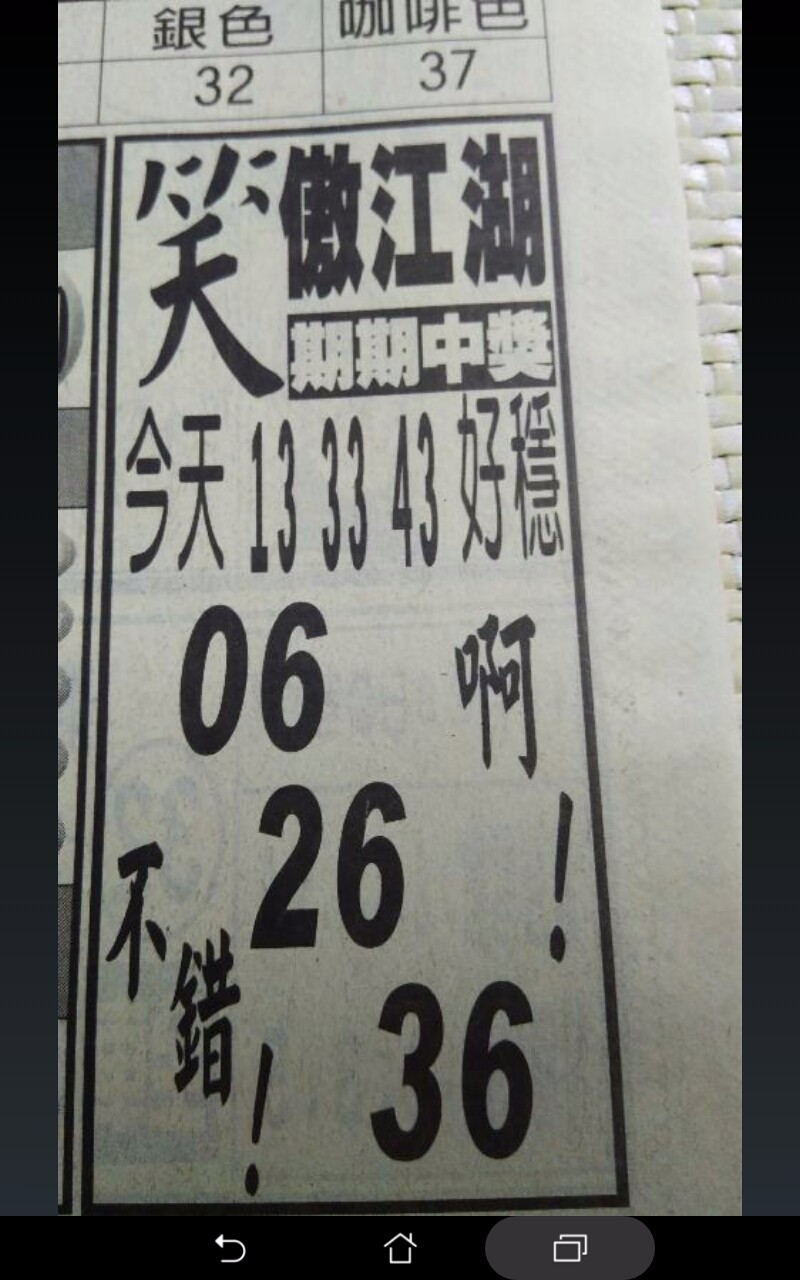 銀色 咖啡色
32 37
笑傲江湖
期期中獎
今天 13 33 43 好穩
06 啊!
26
不錯!
36